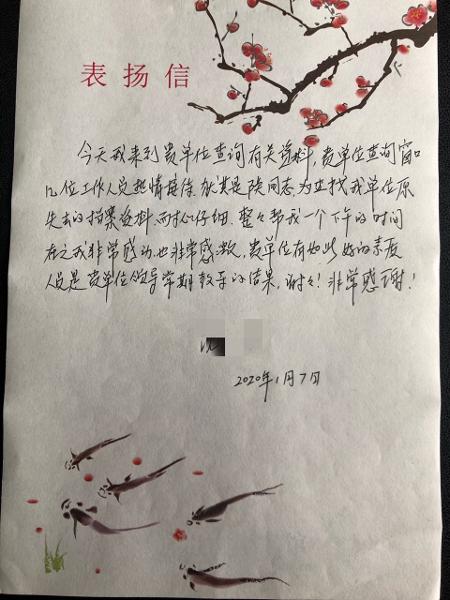 表扬信
今天我来到贵单位查询有关资料，贵单位查询窗口
几位工作人员热情接待。尤其是陈同志为查找我单位原
失去的档案资料，耐心仔细，整整帮我一个下午的时间
在之我非常感动也非常感激，贵单位有如此好的素质
人员是贵单位领导常期教导的结果，谢谢！非常感谢！
2020年1月7日